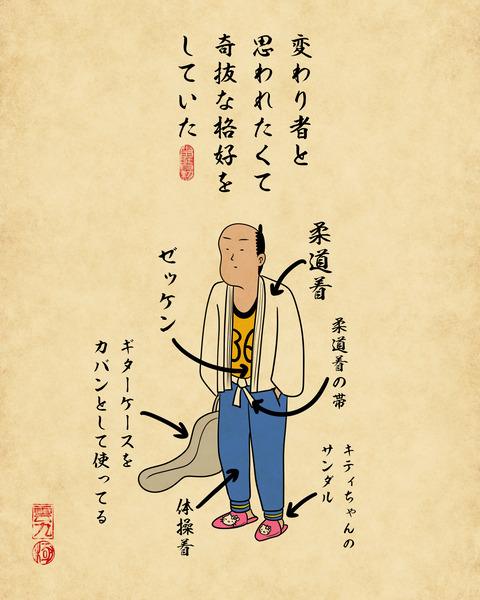 変わり者と
思われたくて
奇抜な格好を
していた
柔道着
ゼッケン
36
柔道着の帯
ギターケースを
カバンとして使ってる
キティちゃんの
サンダル
体操着